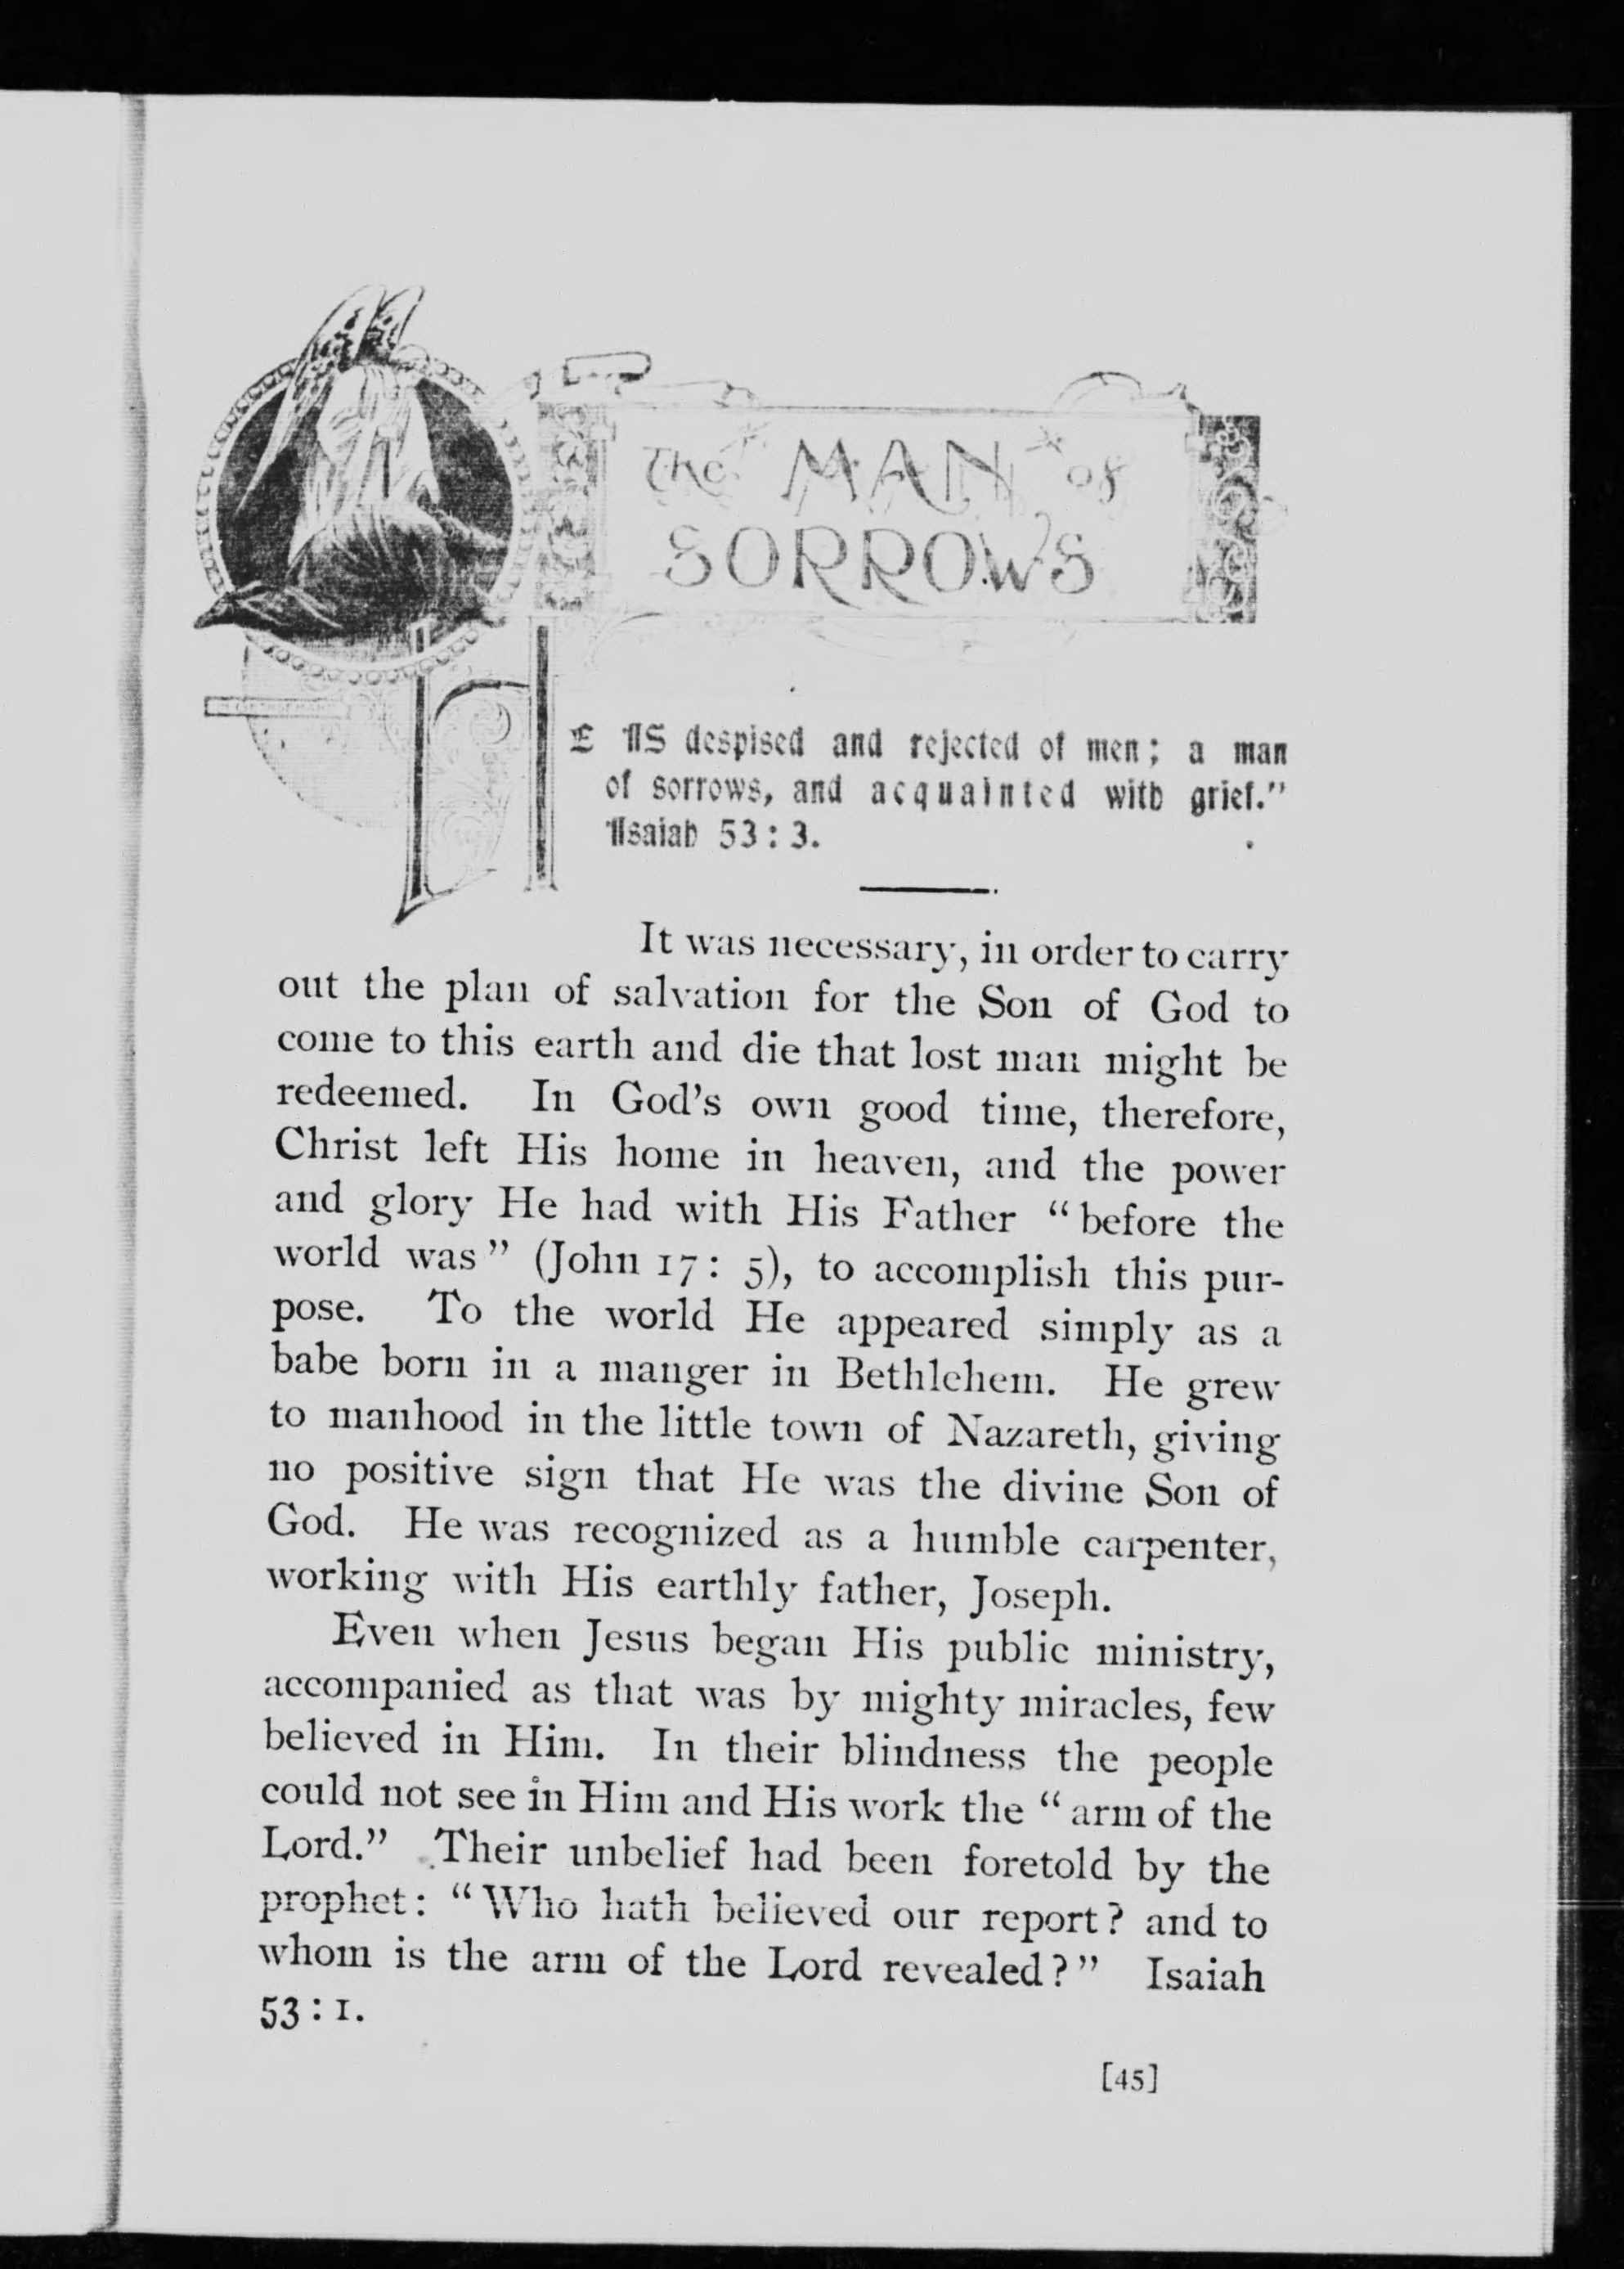 The MAN of
SORROWS
HE IS despised and rejected of men; a man
of sorrows, and acquainted with grief."
Isaiah 53:3.
It was necessary, in order to carry
out the plan of salvation for the Son of God to
come to this earth and die that lost man might be
redeemed. In God's own good time, therefore,
Christ left His home in heaven, and the power
and glory He had with His Father "before the
world was" (John 17: 5), to accomplish this pur-
pose. To the world He appeared simply as a
babe born in a manger in Bethlehem. He grew
to manhood in the little town of Nazareth, giving
no positive sign that He was the divine Son of
God. He was recognized as a humble carpenter,
working with His earthly father, Joseph.
Even when Jesus began His public ministry,
accompanied as that was by mighty miracles, few
believed in Him. In their blindness the people
could not see in Him and His work the "arm of the
Lord." Their unbelief had been foretold by the
prophet: "Who hath believed our report? and to
whom is the arm of the Lord revealed?" Isaiah
53:1.
[45]